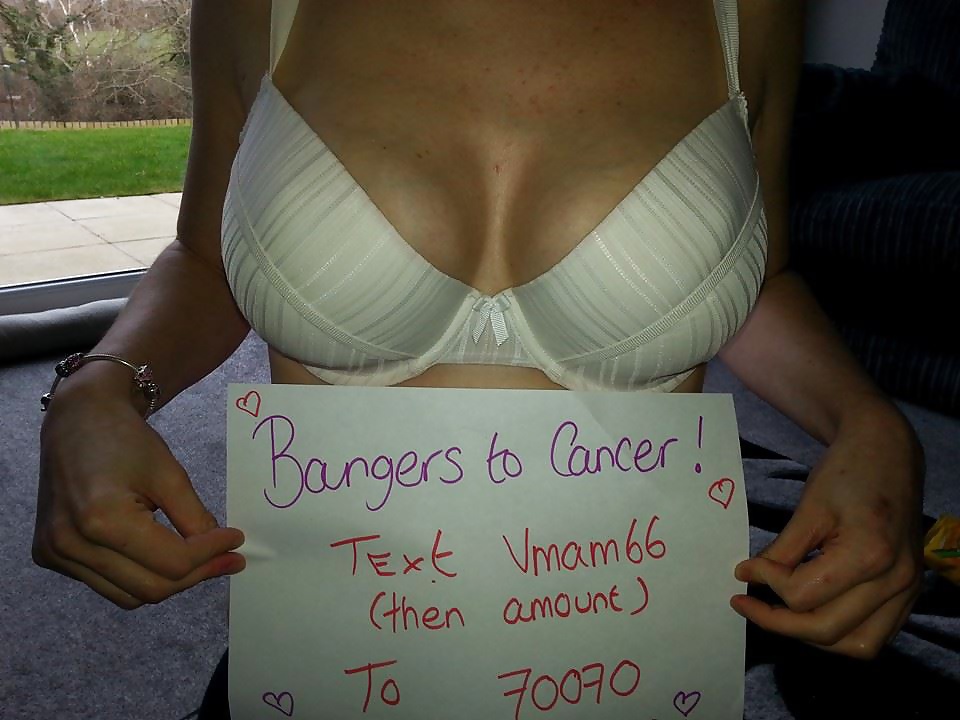 Bangers to Cancer!
TExt Vmam66
(then amount)
To 70070